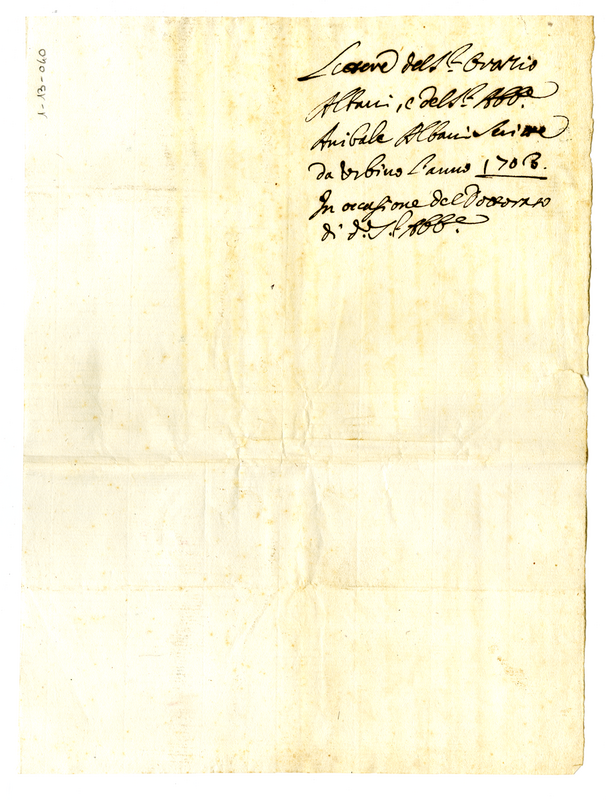 1-13-040
Lettere del Sr. Oratio
Albani, e del Sr. Abb.e
Anibale Albani scritte
da Urbino l'anno 1703.
In occasione del Dottorato
di d.o Sr. Abb.e